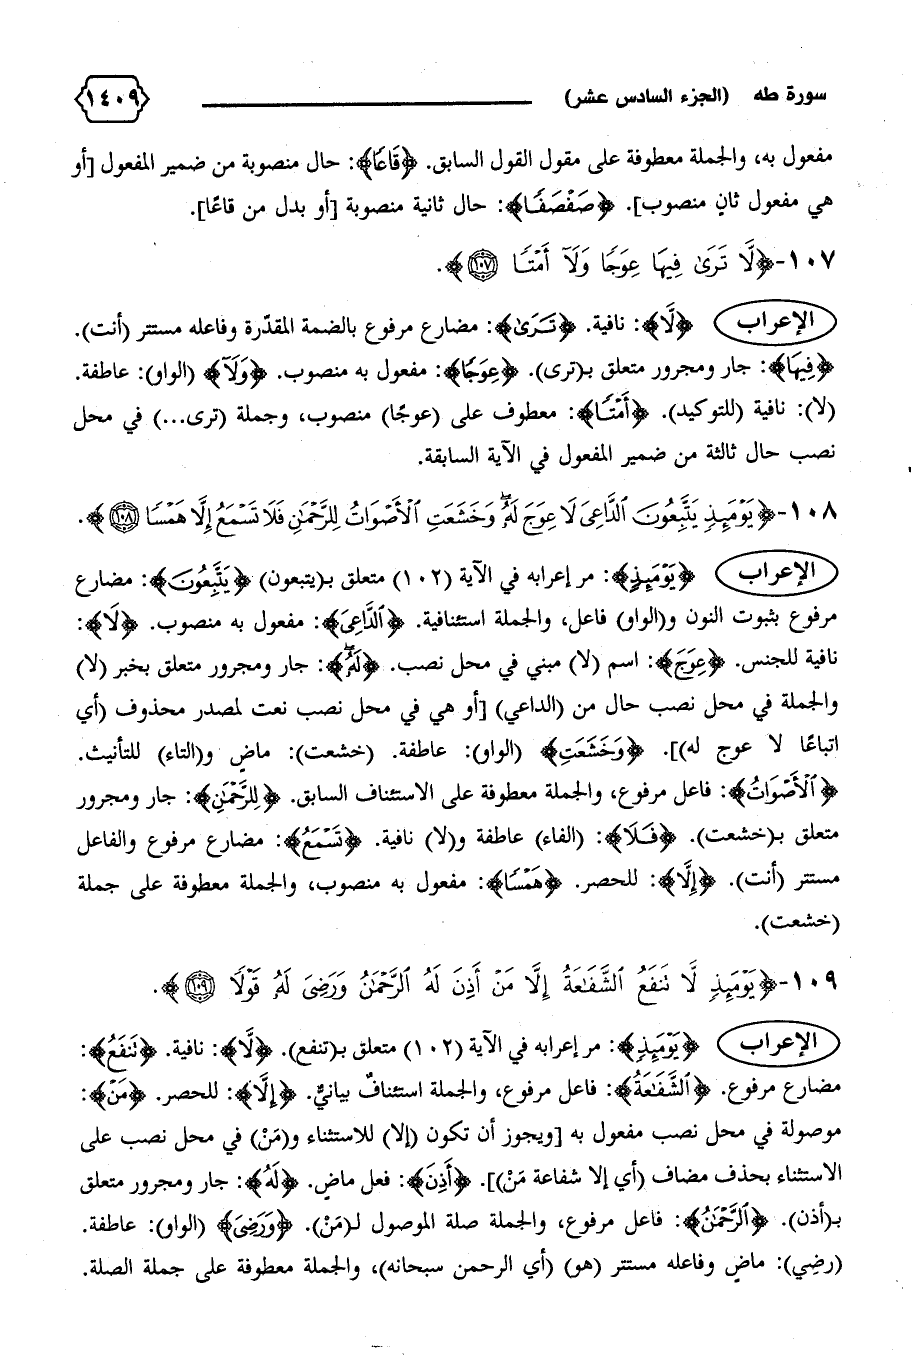 سورة طه (الجزء السادس عشر) ١٤٠٩
مفعول به، والجملة معطوفة على مقول القول السابق. ﴿قَاعًا﴾: حال منصوبة من ضمير المفعول [أو
هي مفعول ثانٍ منصوب]. ﴿صَفْصَفًا﴾: حال ثانية منصوبة [أو بدل من قاعًا].
١٠٧-﴿لَّا تَرَىٰ فِيهَا عِوَجًا وَلَآ أَمْتًا ١٠٧﴾.
الإعراب ﴿لَّا﴾: نافية. ﴿تَرَىٰ﴾: مضارع مرفوع بالضمة المقدّرة وفاعله مستتر (أنت).
﴿فِيهَا﴾: جار ومجرور متعلق بـ(ترى). ﴿عِوَجًا﴾: مفعول به منصوب. ﴿وَلَآ﴾ (الواو): عاطفة.
(لا): نافية (للتوكيد). ﴿أَمْتًا﴾: معطوف على (عوجًا) منصوب، وجملة (ترى...) في محل
نصب حال ثالثة من ضمير المفعول في الآية السابقة.
١٠٨-﴿يَوْمَئِذٍ يَتَّبِعُونَ ٱلدَّاعِىَ لَا عِوَجَ لَهُۥۖ وَخَشَعَتِ ٱلْأَصْوَاتُ لِلرَّحْمَٰنِ فَلَا تَسْمَعُ إِلَّا هَمْسًا ١٠٨﴾.
الإعراب ﴿يَوْمَئِذٍ﴾: مر إعرابه في الآية (١٠٢) متعلق بـ(يتبعون) ﴿يَتَّبِعُونَ﴾: مضارع
مرفوع بثبوت النون و(الواو) فاعل، والجملة استئنافية. ﴿ٱلدَّاعِىَ﴾: مفعول به منصوب. ﴿لَا﴾:
نافية للجنس. ﴿عِوَجَ﴾: اسم (لا) مبني في محل نصب. ﴿لَهُۥۖ﴾: جار ومجرور متعلق بخبر (لا)
والجملة في محل نصب حال من (الداعي) [أو هي في محل نصب نعت لمصدر محذوف (أي
اتباعًا لا عوج له)]. ﴿وَخَشَعَتِ﴾ (الواو): عاطفة. (خشعت): ماضٍ و(التاء) للتأنيث.
﴿ٱلْأَصْوَاتُ﴾: فاعل مرفوع، والجملة معطوفة على الاستئناف السابق. ﴿لِلرَّحْمَٰنِ﴾: جار ومجرور
متعلق بـ(خشعت). ﴿فَلَا﴾: (الفاء) عاطفة و(لا) نافية. ﴿تَسْمَعُ﴾: مضارع مرفوع والفاعل
مستتر (أنت). ﴿إِلَّا﴾: للحصر. ﴿هَمْسًا﴾: مفعول به منصوب، والجملة معطوفة على جملة
(خشعت).
١٠٩-﴿يَوْمَئِذٍ لَّا تَنفَعُ ٱلشَّفَٰعَةُ إِلَّا مَنْ أَذِنَ لَهُ ٱلرَّحْمَٰنُ وَرَضِىَ لَهُۥ قَوْلًا ١٠٩﴾.
الإعراب ﴿يَوْمَئِذٍ﴾: مر إعرابه في الآية (١٠٢) متعلق بـ(تنفع). ﴿لَّا﴾: نافية. ﴿تَنفَعُ﴾:
مضارع مرفوع. ﴿ٱلشَّفَٰعَةُ﴾: فاعل مرفوع، والجملة استئنافٌ بيانيٌّ. ﴿إِلَّا﴾: للحصر. ﴿مَنْ﴾:
موصولة في محل نصب مفعول به [ويجوز أن تكون (إلا) للاستثناء و(مَنْ) في محل نصب على
الاستثناء بحذف مضاف (أي إلا شفاعة مَنْ)]. ﴿أَذِنَ﴾: فعل ماضٍ. ﴿لَهُ﴾: جار ومجرور متعلق
بـ(أذن). ﴿ٱلرَّحْمَٰنُ﴾: فاعل مرفوع، والجملة صلة الموصول لـ(مَنْ). ﴿وَرَضِىَ﴾ (الواو): عاطفة.
(رضِي): ماضٍ وفاعله مستتر (هو) (أي الرحمن سبحانه)، والجملة معطوفة على جملة الصلة.